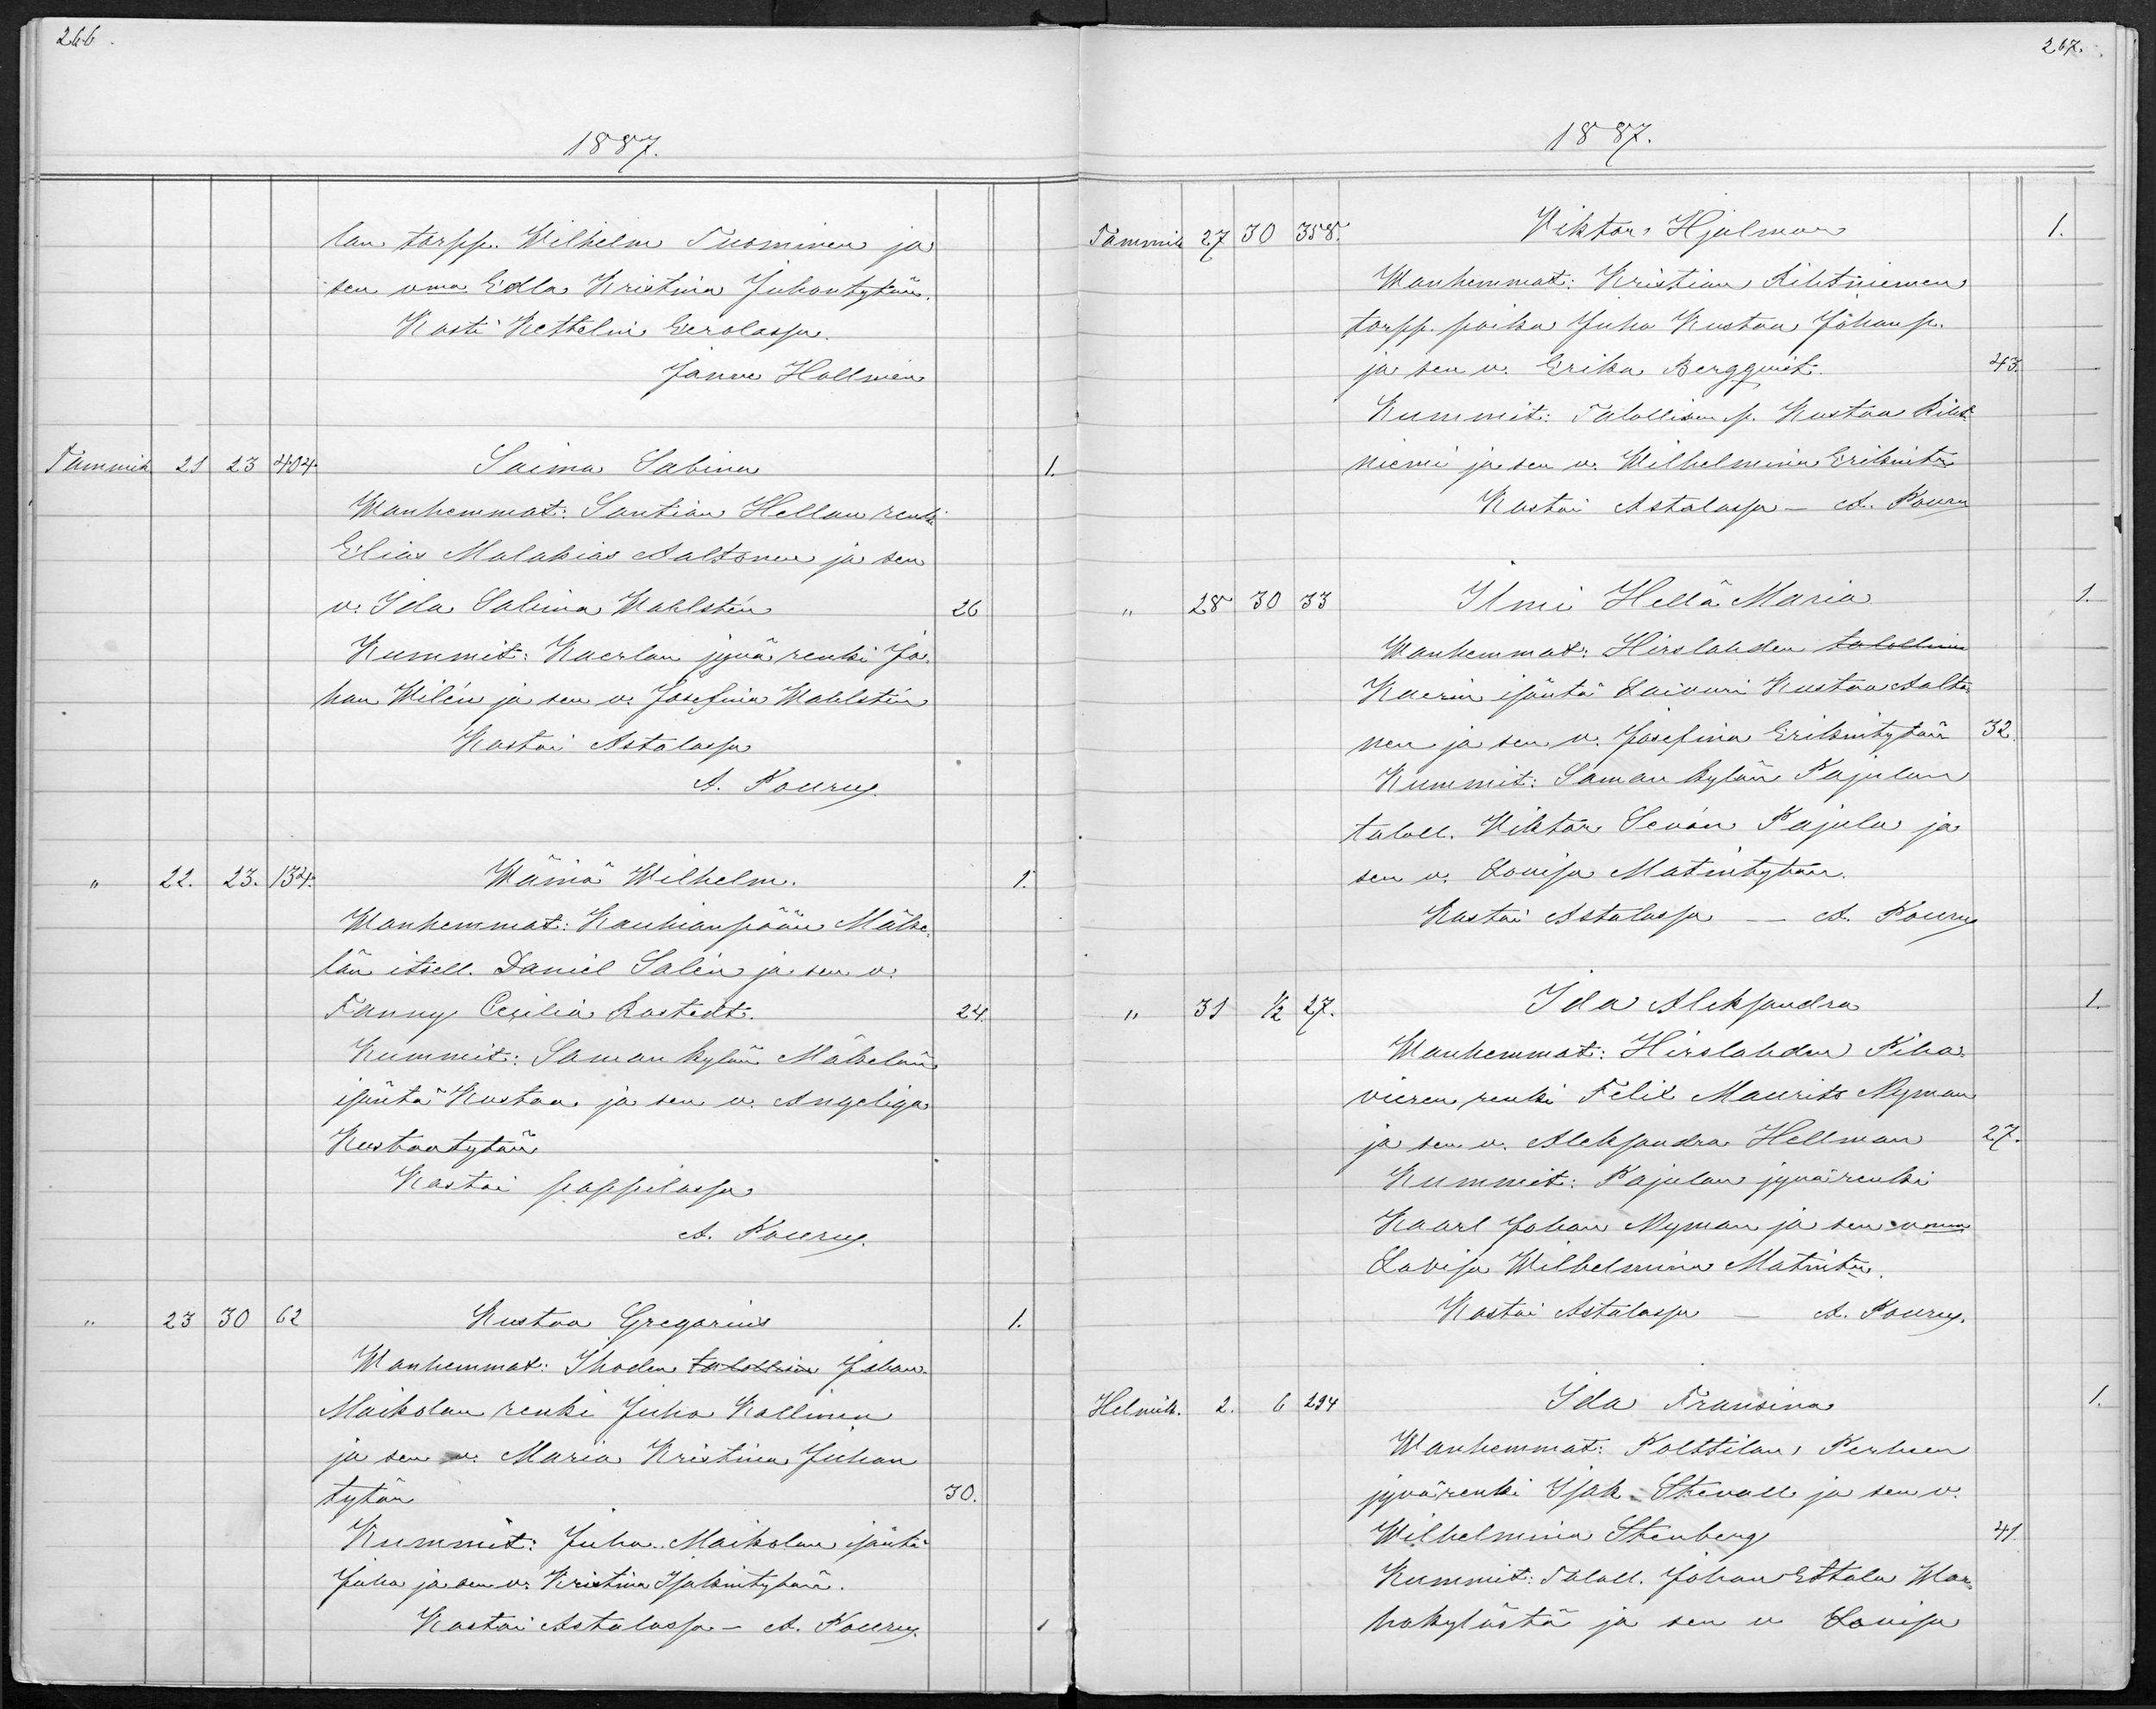 266.
1887.
lan torpp. Wilhelm Tuominen ja
sen vma Edla Kristina Juhontytär.
Kasti Kettelin Eerolassa.
Janne Hollmén
Tammik 21 23 404. Saima Sabina 1.
Wanhemmat: Santion Hellan renki
Elias Malakias Aaltonen ja sen
v. Ida Sabina Wahlstén 26
Kummit: Kaerlan jyvärenki Jo-
han Wilén ja sen v. Josefina Wahlstén
Kastoi Astalassa
A. Pouru.
" 22. 23. 134. Wäinö Wilhelm. 1.
Wanhemmat: Kauhianpään Mäke-
län itsell. Daniel Salén ja sen v.
Fanny Cecilia Rostedt. 24.
Kummit: Saman kylän Mäkelän
isäntä Kustaa ja sen v. Angeliqa
Kustaantytär
Kastoi pappilassa
A. Pouru.
" 23 30 62 Kustaa Gregorius 1.
Wanhemmat: Ihoden talollisen Johan
Maikolan renki Juho Kallinen
ja sen v. Maria Kristina Juhon
tytär 30.
Kummit: Juho Maikolan isäntä
Juho ja sen v. Kristina Isakintytär.
Kastoi Astalassa – A. Pouru.
267.
1887.
Tammik 27 30 358. Viktor Hjalmar 1.
Wanhemmat: Kristian Rihtniemen
torpp. poika Juho Kustaa Johanp.
ja sen v. Erika Bergqvist. 43.
Kummit: Talollisen p. Kustaa Riht-
niemi ja sen v. Wilhelmina Erikintr
Kastoi Astalassa – A. Pouru
" 28 30 33 Ilmi Hellä Maria 1.
Wanhemmat: Hirslahden talollinen
Kaerin isäntä Laivuri Kustaa Aalto-
nen ja sen v. Josefina Erikintytär 32.
Kummit: Saman kylän Pajulan
taloll. Viktor Sevón Pajula ja
sen v. Lovisa Matintytär.
Kastoi Astalassa — A. Pouru
" 31 1/2 27. Ida Aleksandra 1.
Wanhemmat: Hirslahden Piha-
vieren renki Felix Maurits Nyman
ja sen v. Aleksandra Hellman 27.
Kummit: Pajulan jyvärenki
Kaarl Johan Nyman ja sen vma
Lovisa Wilhelmina Matintr.
Kastoi Astalassa – A. Pouru.
Helmik. 2. 6 294 Ida Fransina 1.
Wanhemmat: Polttilan Perheen
jyvärenki Isak Stenvall ja sen v.
Wilhelmina Stenberg 41.
Kummit: Taloll. Johan Ettala War-
hokylästä ja sen v Lovisa